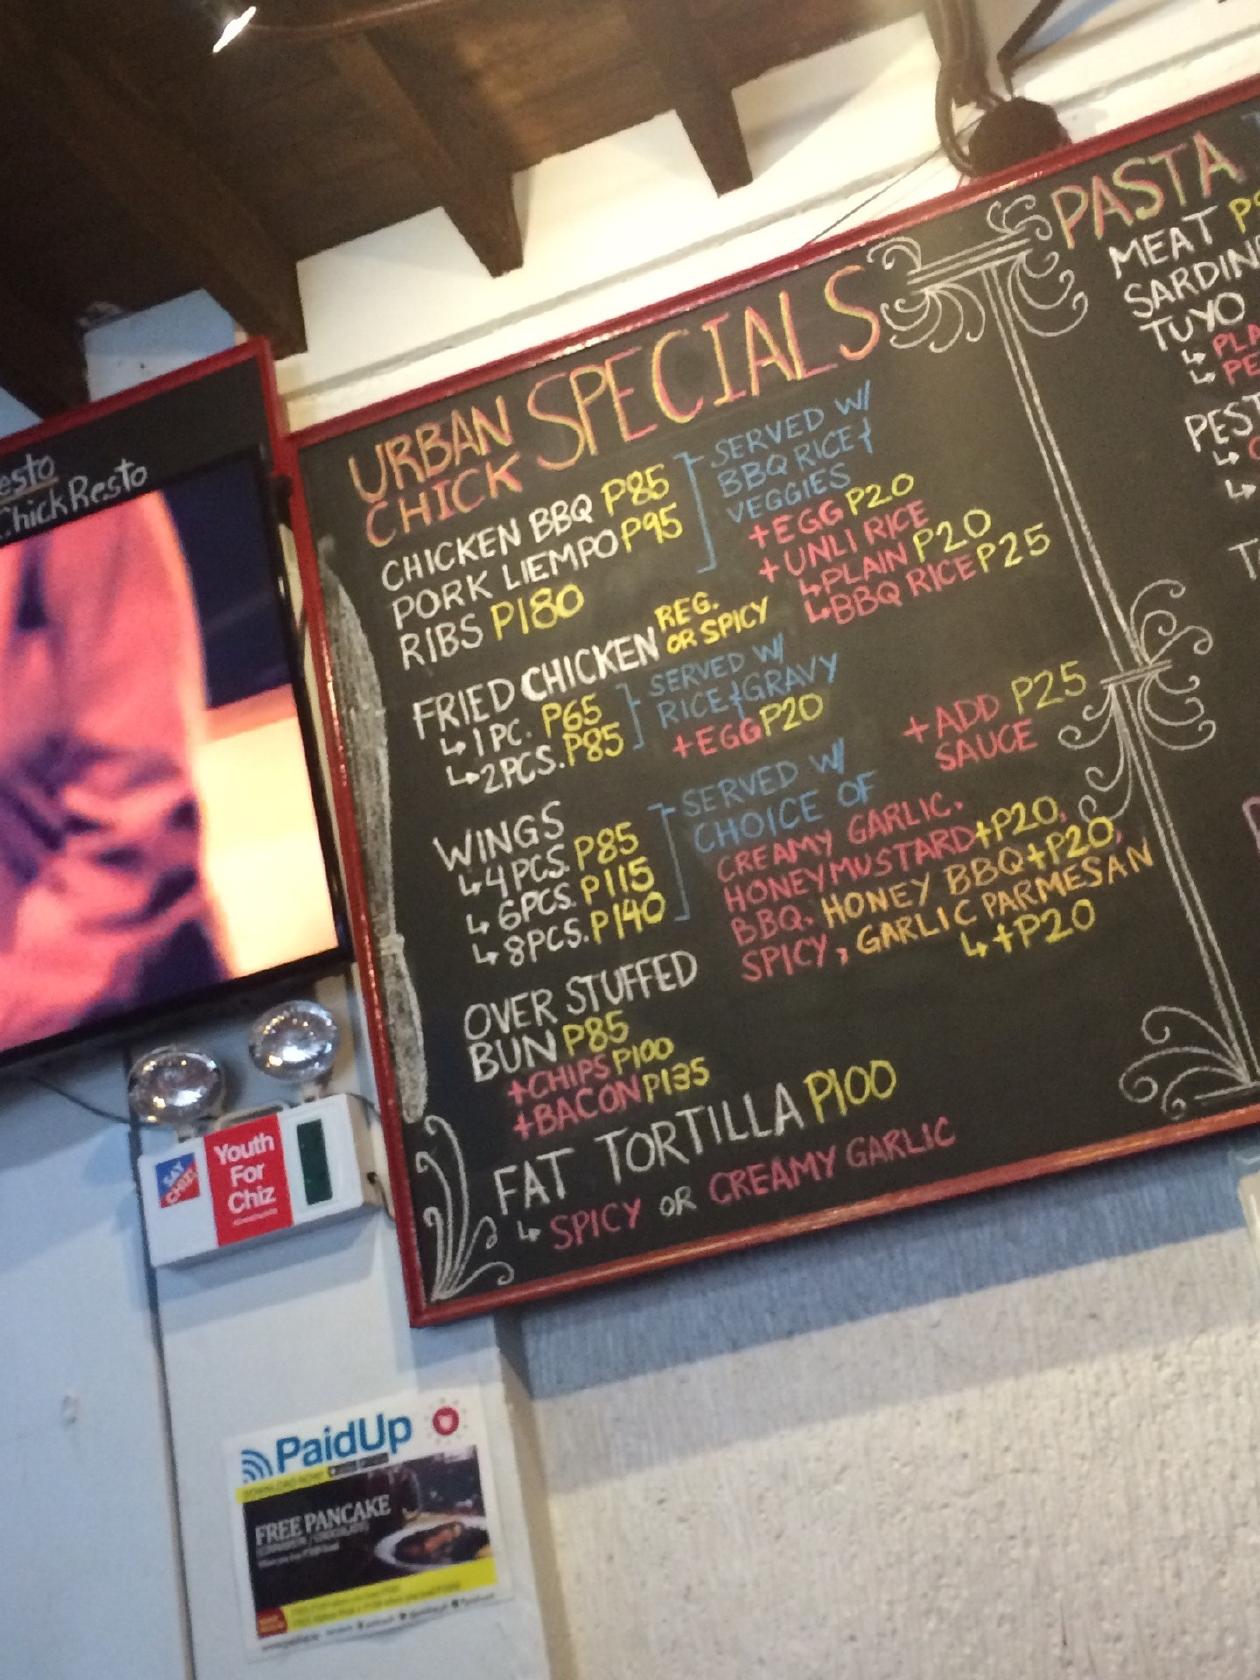 esto
ChickResto
URBAN
CHICK SPECIALS
CHICKEN BBQ P85
PORK LIEMPO P95
RIBS P180
SERVED W/
BBQ RICE &
VEGGIES
+EGG P20
+UNLI RICE
↳PLAIN P20
↳BBQ RICE P25
FRIED CHICKEN REG.
OR SPICY
↳1PC. P65
↳2PCS. P85
SERVED W/
RICE & GRAVY
+EGG P20
WINGS
↳4PCS. P85
↳6PCS. P115
↳8PCS. P140
SERVED W/
CHOICE OF
+ADD P25
SAUCE
CREAMY GARLIC.
HONEYMUSTARD+P20,
BBQ. HONEY BBQ+P20,
SPICY, GARLIC PARMESAN
↳+P20
OVER STUFFED
BUN P85
+CHIPS P100
+BACON P135
FAT TORTILLA P100
↳SPICY OR CREAMY GARLIC
PASTA
MEAT
SARDIN
TUYO
↳PLA
↳PE
PEST
SAY
CHIZ!
Youth
For
Chiz
PaidUp
DOWNLOAD NOW!
FREE PANCAKE